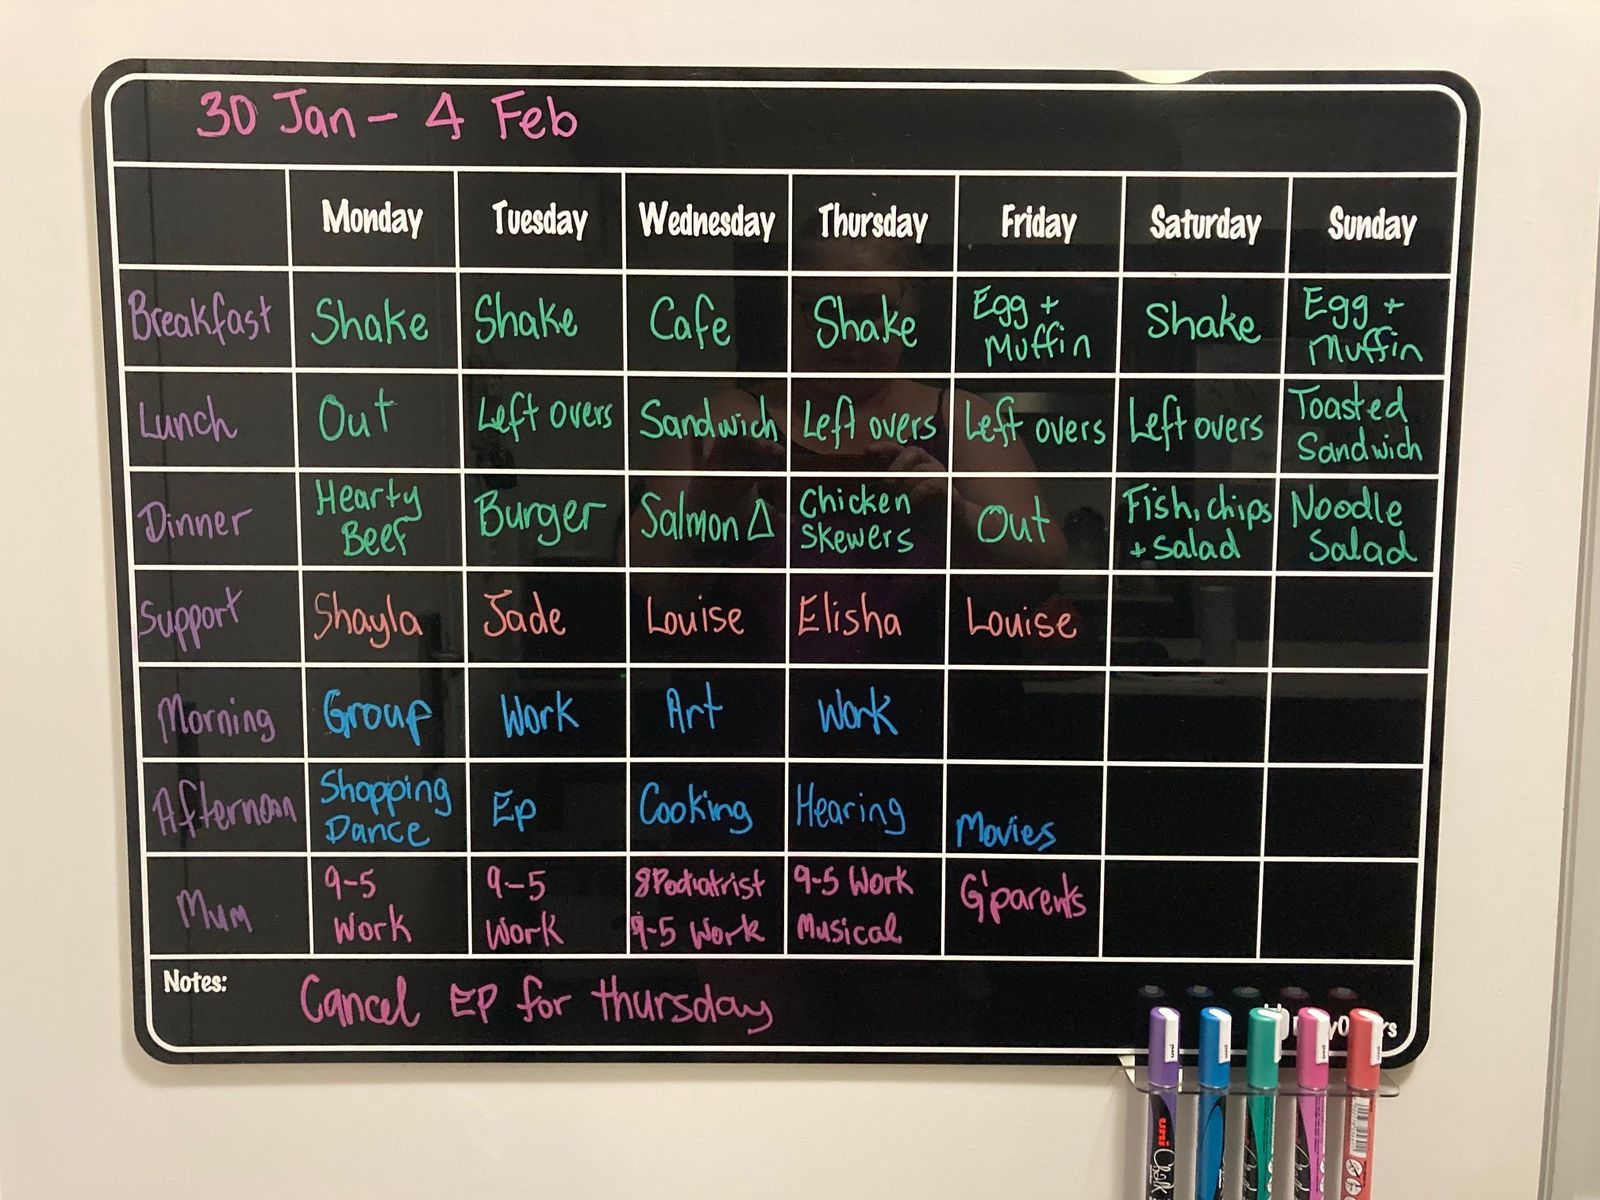 30 Jan - 4 Feb
Monday Tuesday Wednesday Thursday Friday Saturday Sunday
Breakfast Shake Shake Cafe Shake Egg + Muffin Shake Egg + Muffin
Lunch Out Left overs Sandwich Left overs Left overs Left overs Toasted Sandwich
Dinner Hearty Beef Burger Salmon Δ Chicken Skewers Out Fish, chips + salad Noodle Salad
Support Shayla Jade Louise Elisha Louise
Morning Group Work Art Work
Afternoon Shopping Dance Ep Cooking Hearing Movies
Mum 9-5 Work 9-5 Work 8 Podiatrist 9-5 Work 9-5 Work Musical G'parents
Notes: Cancel EP for thursday
uni
Chalk